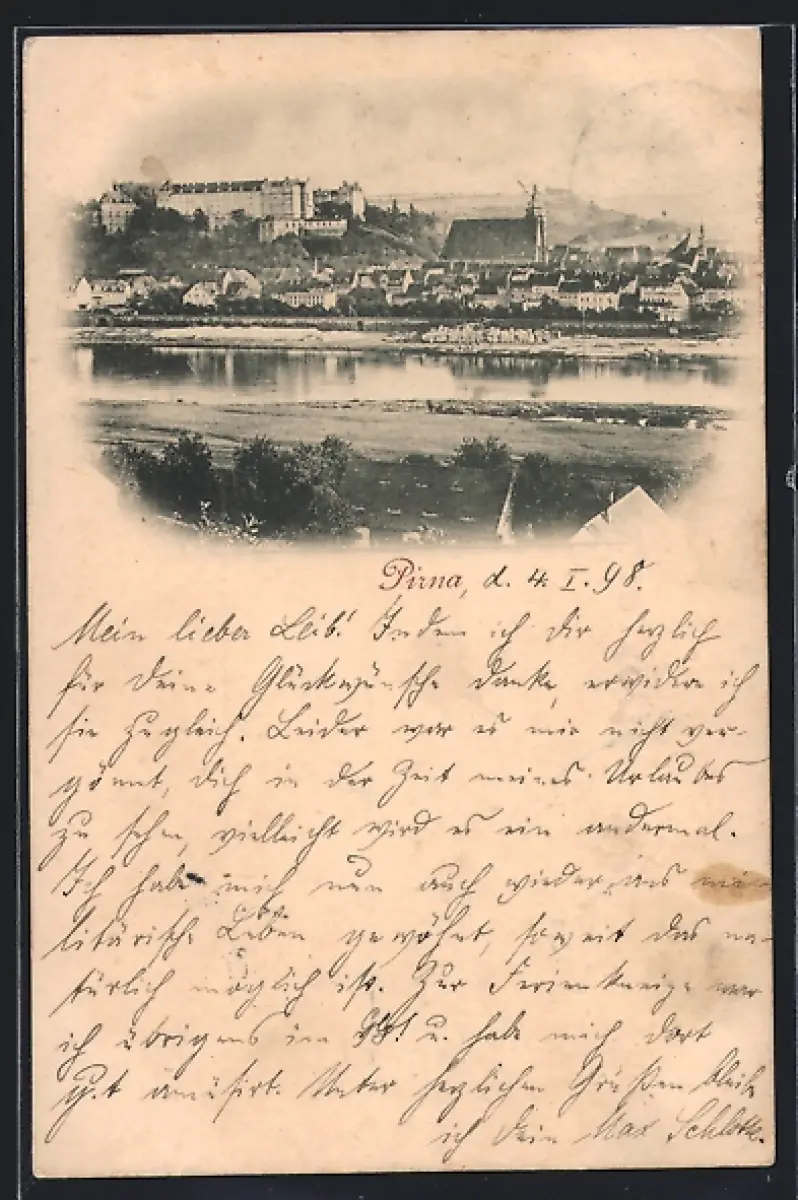 Pirna, d. 4. I. 98.
Mein lieber Leib! Indem ich Dir herzlich
für Deine Glückwünsche danke, erwidere ich
sie zugleich. Leider war es mir nicht ver-
gönnt, Dich in der Zeit meines Urlaubes
zu sehen, vielleicht wird es ein andermal.
Ich habe mich nun auch wieder ans mi-
litärische Leben gewöhnt, soweit das na-
türlich möglich ist. Zur Ferienkneipe war
ich übrigens im u. habe mich dort
gut amüsirt. Unter herzlichen Grüßen bleibe
ich Dein Max Schlotte.